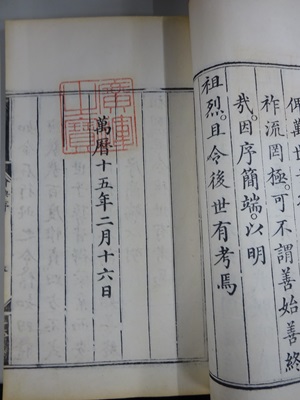 俾萬世
祚流罔極。可不謂善始善終
哉。因序簡端。以明
祖烈。且令後世有考焉
萬曆十五年二月十六日
廣運
之寶